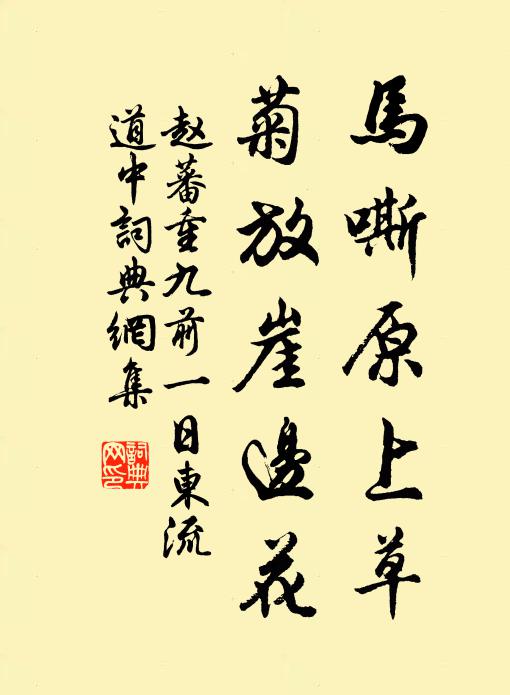 馬嘶原上草
菊放崖邊花
赵蕃重九前一日東流
道中詞典網集
詞典
网印